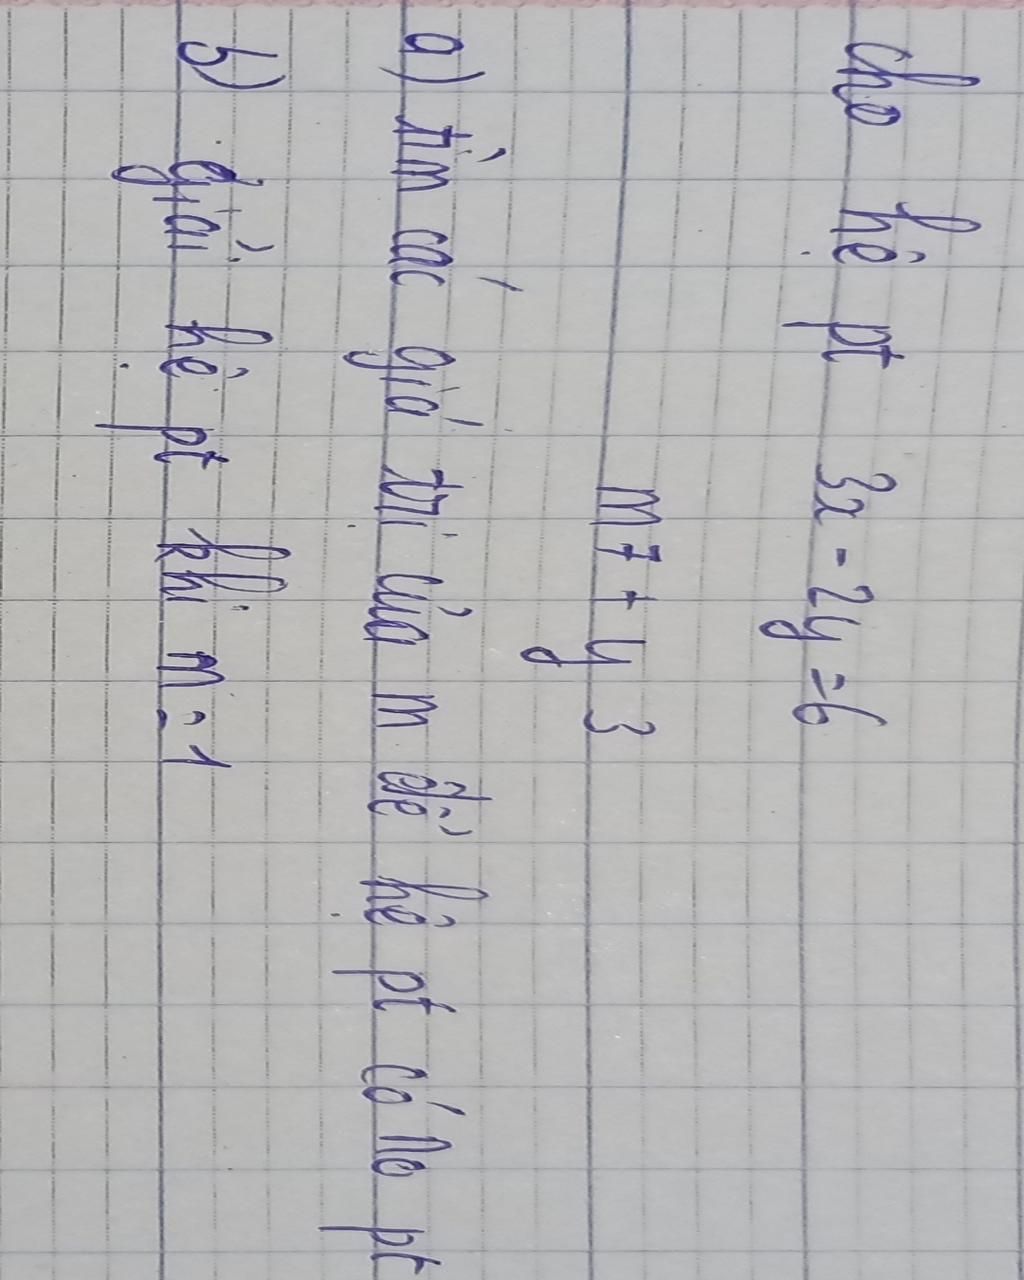 cho hệ pt 3x - 2y = 6
m7 + y 3
a) tìm các giá trị của m để hệ pt có no pt
b) giải hệ pt khi m = 1